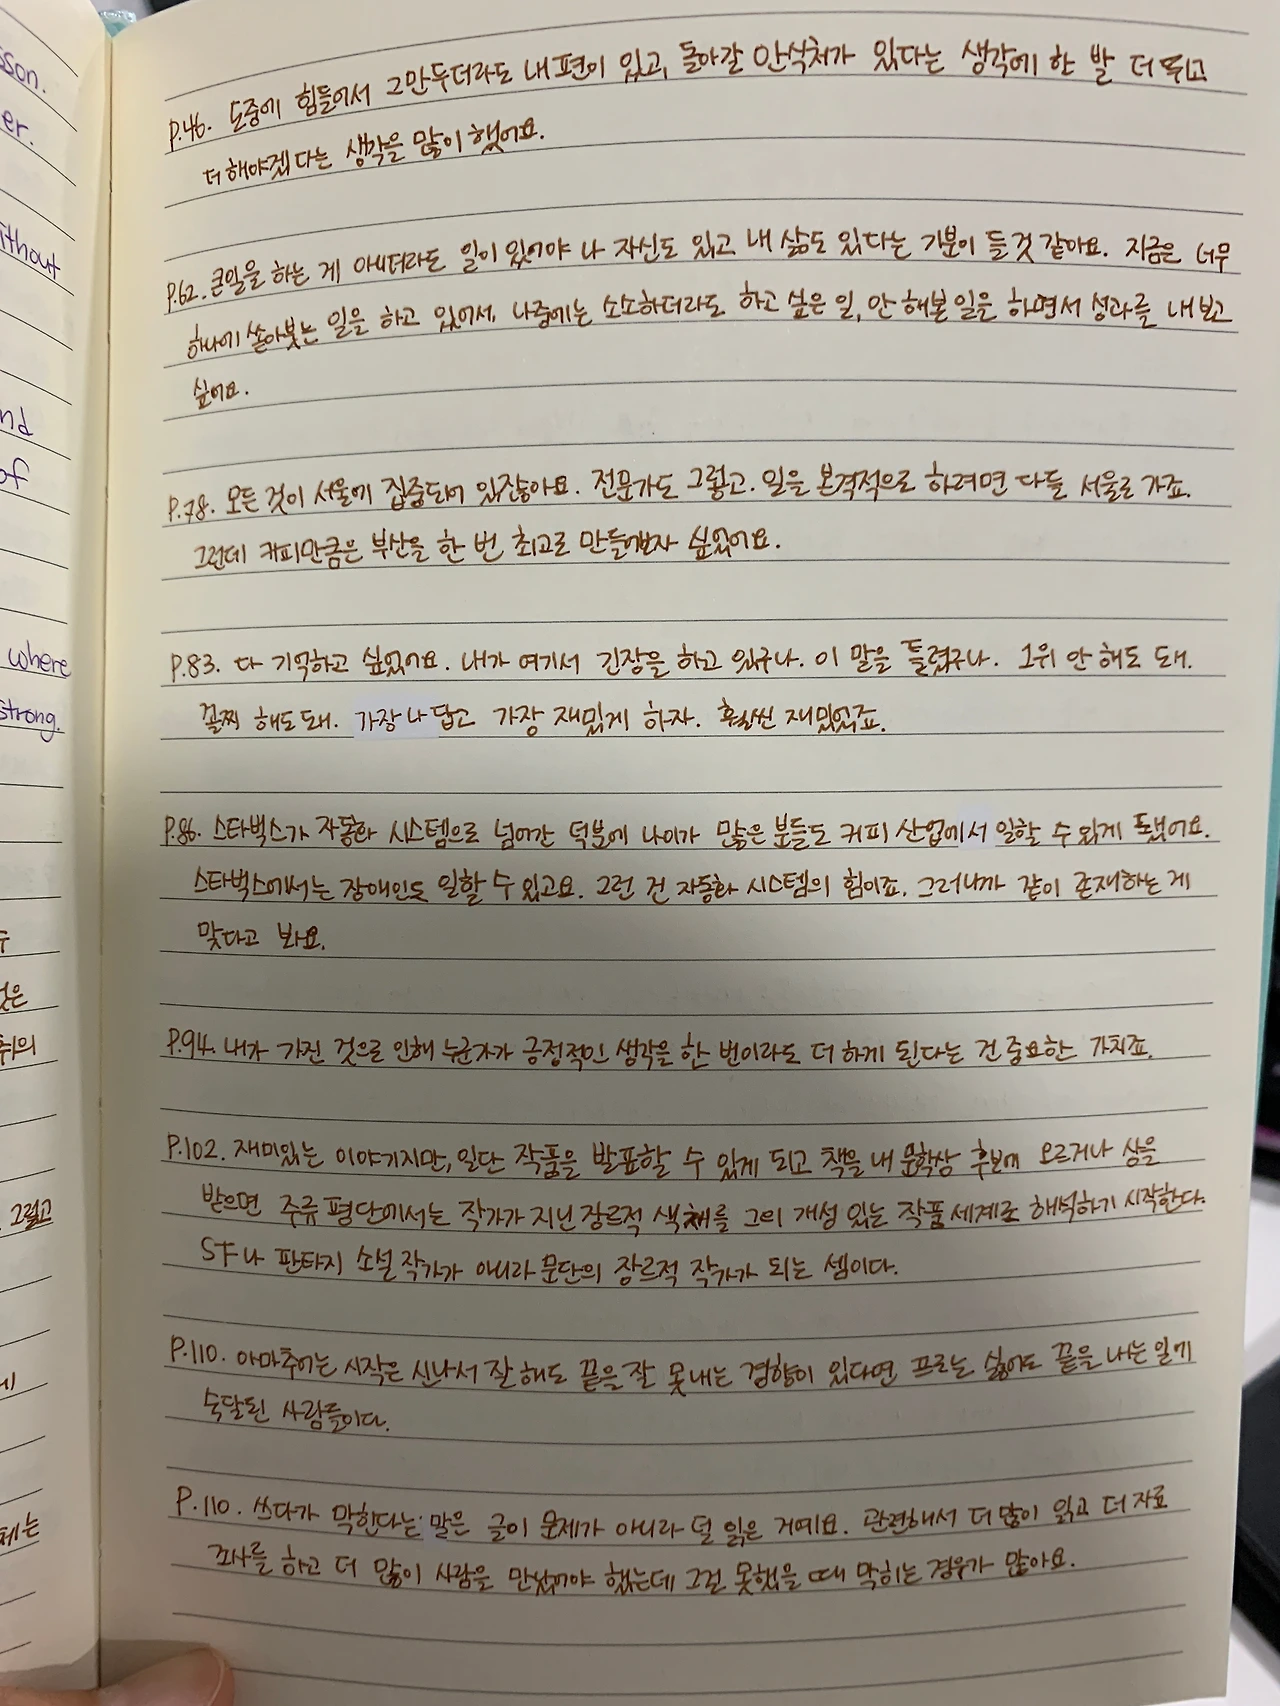 sson.
er.
ithout
nd
of
where
strong.
것은
취의
그렇고
체는
P.46. 도중에 힘들어서 그만두더라도 내 편이 있고, 돌아갈 안식처가 있다는 생각에 한 발 더 뛰고
더 해야겠다는 생각을 많이 했어요.
P.62. 큰일을 하는 게 아니더라도 일이 있어야 나 자신도 있고 내 삶도 있다는 기분이 들 것 같아요. 지금은 너무
하나에 쏟아붓는 일을 하고 있어서, 나중에는 소소하더라도 하고 싶은 일, 안 해본 일을 하면서 성과를 내 보고
싶어요.
P.78. 모든 것이 서울에 집중되어 있잖아요. 전문가도 그렇고. 일을 본격적으로 하려면 다들 서울로 가죠.
그런데 커피만큼은 부산을 한 번 최고로 만들어보자 싶었어요.
P.83. 다 기억하고 싶었어요. 내가 여기서 긴장을 하고 있구나. 이 말을 틀렸구나. 1위 안 해도 돼.
꼴찌 해도 돼. 가장 나답고 가장 재밌게 하자. 훨씬 재밌었죠.
P.86. 스타벅스가 자동화 시스템으로 넘어간 덕분에 나이가 많은 분들도 커피 산업에서 일할 수 있게 됐어요.
스타벅스에서는 장애인도 일할 수 있고요. 그런 건 자동화 시스템의 힘이죠. 그러니까 같이 존재하는 게
맞다고 봐요.
P.94. 내가 가진 것으로 인해 누군가가 긍정적인 생각을 한 번이라도 더 하게 된다는 건 중요한 가치죠.
P.102. 재미있는 이야기지만, 일단 작품을 발표할 수 있게 되고 책을 내 문학상 후보에 오르거나 상을
받으면 주류 평단에서는 작가가 지닌 장르적 색채를 그의 개성 있는 작품 세계로 해석하기 시작한다.
SF나 판타지 소설 작가가 아니라 문단의 장르적 작가가 되는 셈이다.
P.110. 아마추어는 시작은 신나서 잘 해도 끝을 잘 못 내는 경향이 있다면 프로는 싫어도 끝을 내는 일에
숙달된 사람들이다.
P.110. 쓰다가 막힌다는 말은 글이 문제가 아니라 덜 읽은 거예요. 관련해서 더 많이 읽고 더 자료
조사를 하고 더 많이 사람을 만났어야 했는데 그걸 못했을 때 막히는 경우가 많아요.